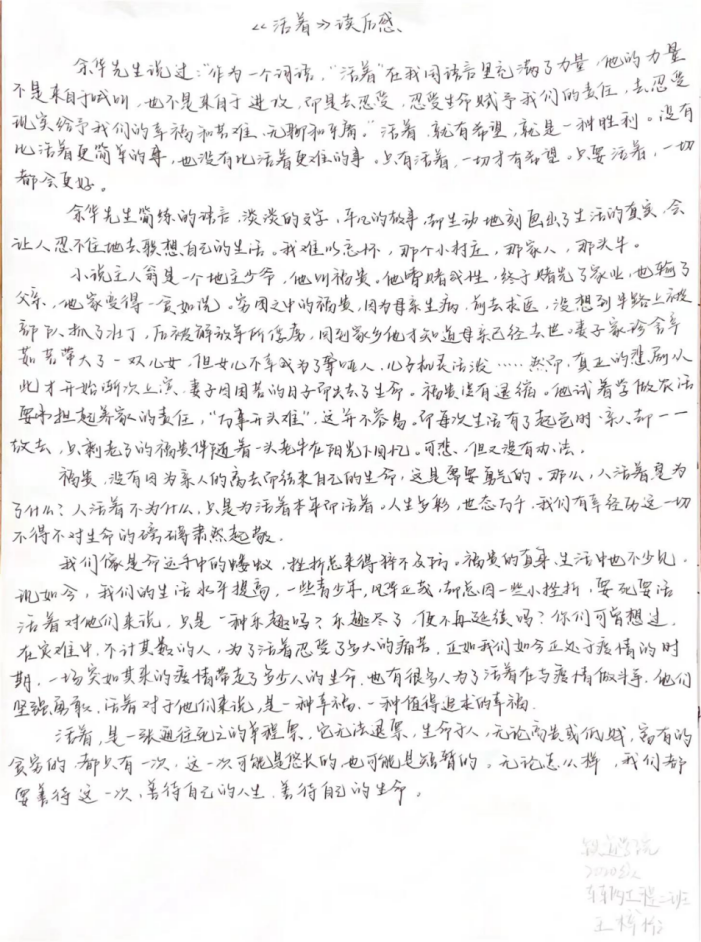 《活着》读后感
余华先生说过:“作为一个词语,“活着”在我国语言里充满了力量,他的力量
不是来自于喊叫,也不是来自于进攻,而是去忍受,忍受生命赋予我们的责任,去忍受
现实给予我们的幸福和苦难、无聊和平庸。”活着,就有希望,就是一种胜利。没有
比活着更简单的事,也没有比活着更难的事。只有活着,一切才有希望。只要活着,一切
都会更好。
余华先生简练的语言,淡淡的文字,平凡的故事,却生动地刻画出了生活的真实,会
让人忍不住地去联想自己的生活。我难以忘怀,那个小村庄,那家人,那头牛。
小说主人翁是一个地主少爷,他叫福贵。他嗜赌成性,终于赌光了家业,也输了
父亲,他家变得一贫如洗。穷困之中的福贵,因为母亲生病,前去求医,没想到半路上被
部队抓了壮丁,后被解放军所俘虏,回到家乡他才知道母亲已经去世,妻子家珍含辛
茹苦带大了一双儿女,但女儿不幸成为了聋哑人,儿子机灵活泼……然而,真正的悲剧从
此才开始渐次上演,妻子因困苦的日子而失去了生命。福贵没有退缩。他试着学做农活
要承担起养家的责任,“万事开头难”,这并不容易。而每次生活有了起色时,亲人却一一
故去,只剩老了的福贵伴随着一头老牛在阳光下回忆。可悲,但又没有办法。
福贵,没有因为亲人的离去而结束自己的生命,这是需要勇气的。那么,人活着是为
了什么?人活着不为什么,只是为活着本身而活着。人生多彩,世态万千,我们有幸经历这一切
不得不对生命的磅礴肃然起敬.
我们像是命运手中的蝼蚁,挫折总来得猝不及防。福贵的真身,生活中也不少见.
现如今,我们的生活水平提高,一些青少年,风华正茂,却总因一些小挫折,要死要活
活着对他们来说,只是一种乐趣吗?乐趣尽了,便不再延续吗?你们可曾想过,
在灾难中,不计其数的人,为了活着忍受了多大的痛苦,正如我们如今正处于疫情的时
期,一场突如其来的疫情带走了多少人的生命,也有很多人为了活着在与疫情做斗争,他们
坚强勇敢,活着对于他们来说,是一种幸福,一种值得追求的幸福.
活着,是一张通往死亡的单程票,它无法退票,生命于人,无论高贵或低贱,富有的
贫穷的,都只有一次,这一次可能是悠长的,也可能是短暂的,无论怎么样,我们都
要善待这一次,善待自己的人生,善待自己的生命。
学院
2020级
车辆工程二班
王